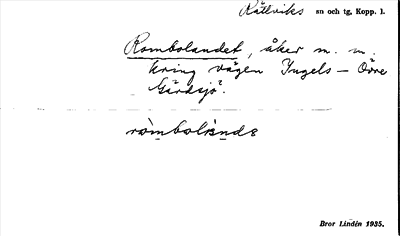 Rättviks sn och tg, Kopp. l.
Rombolandet, åker m. m.
kring vägen Ingels – Övre
Gärdsjö.
ròmbolànde
Bror Lindén 1935.